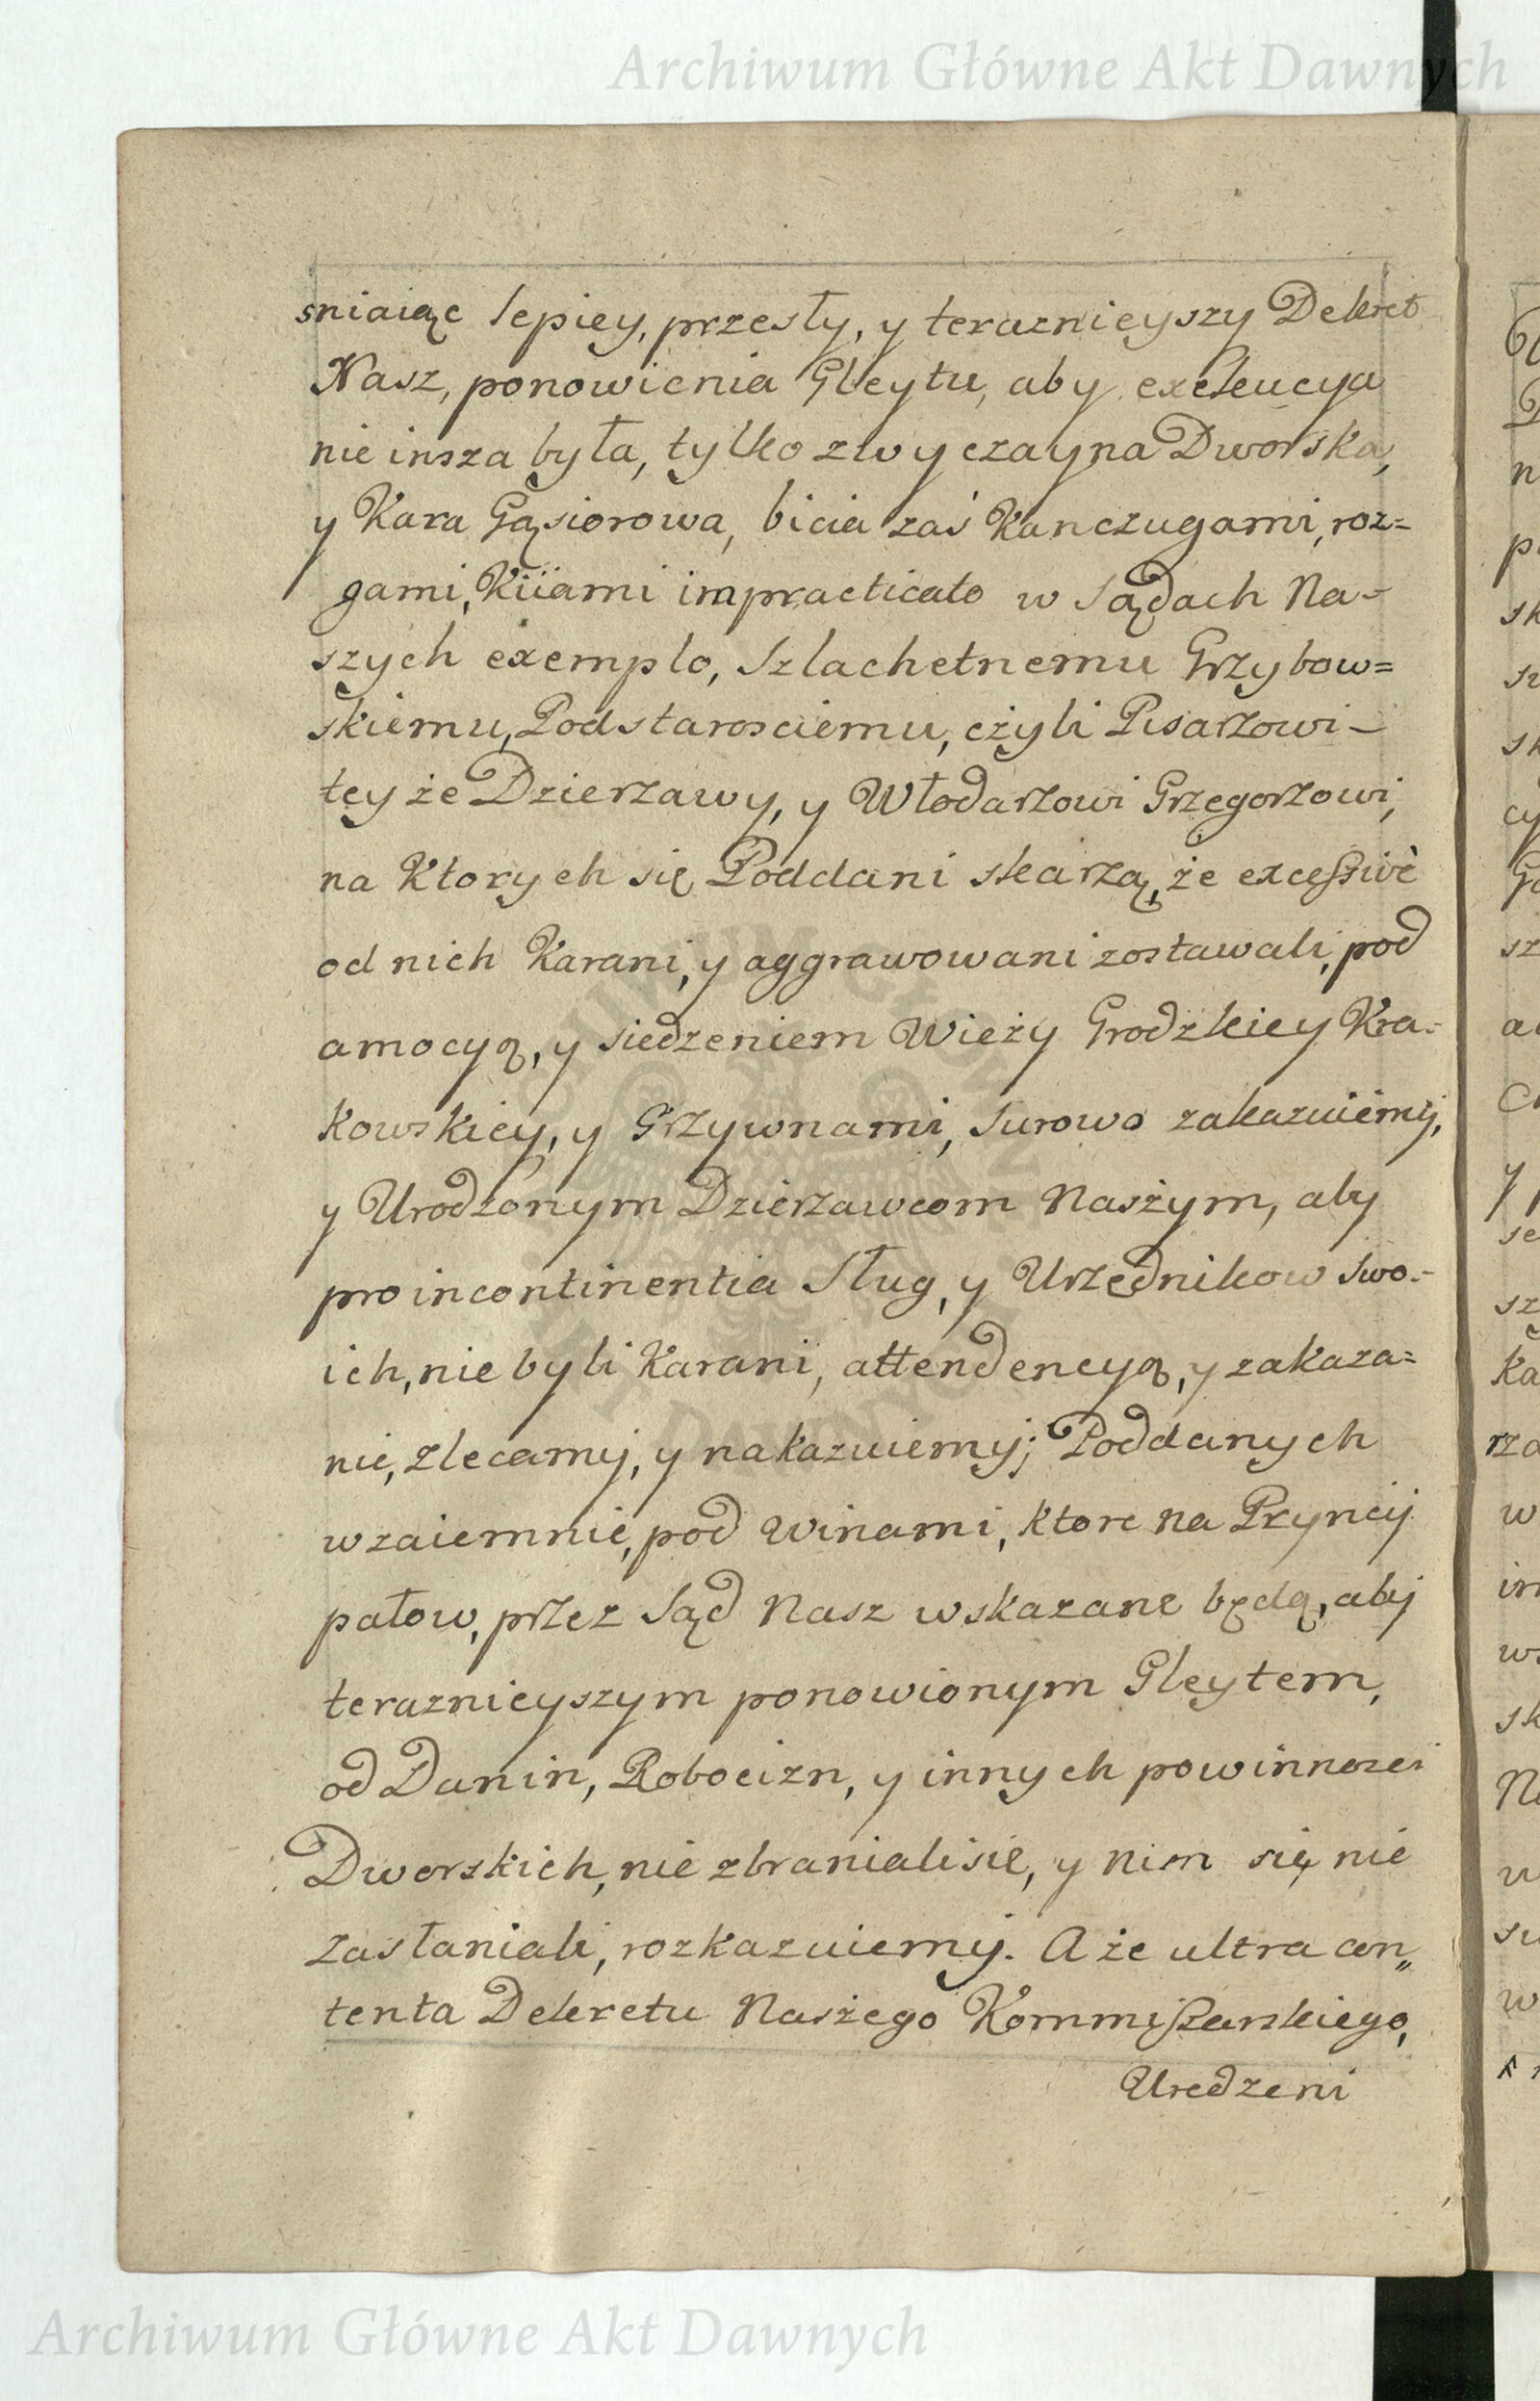 Archiwum Główne Akt Dawnych
sniaiąc lepiey, przesły, y teraznieyszy Dekret
Nasz, ponowienia Gleytu, aby exekucya
nie insza była, tylko zwyczayna Dworska,
y Kara Gąsiorowa, bicia zaś Kanczugami, roz=
gami, Kiiami impracticato w Sądach Na-
szych exemplo, Szlachetnemu Grzybow=
skiemu, Podstarosciemu, czyli Pisarzowi -
teyże Dzierzawy, y Włodarzowi Grzegorzowi,
na Ktorych się Poddani skarzą, że excessivè
od nich Karani, y aggrawowani zostawali, pod
amocyą, y siedzeniem Wieży Grodzkiey Kra-
kowskiey, y Grzywnami, surowo zakazuiemy,
y Urodzonym Dzierzawcom Naszym, aby
pro incontinentia Sług, y Urzędnikow swo-
ich, nie byli Karani, attendencyą, y zakaza=
nie, zlecamy, y nakazuiemy; Poddanych
wzaiemnie, pod winami, ktore na Pryncy
pałow, przez Sąd Nasz wskazane będą, aby
teraznieyszym ponowionym Gleytem,
od Danin, Robocizn, y innych powinnosci
Dworskich, nie zbraniali sie, y nim się nie
zasłaniali, rozkazuiemy. A że ultra con„
tenta Dekretu Naszego Kommissarskiego,
Urodzeni
Archiwum Główne Akt Dawnych